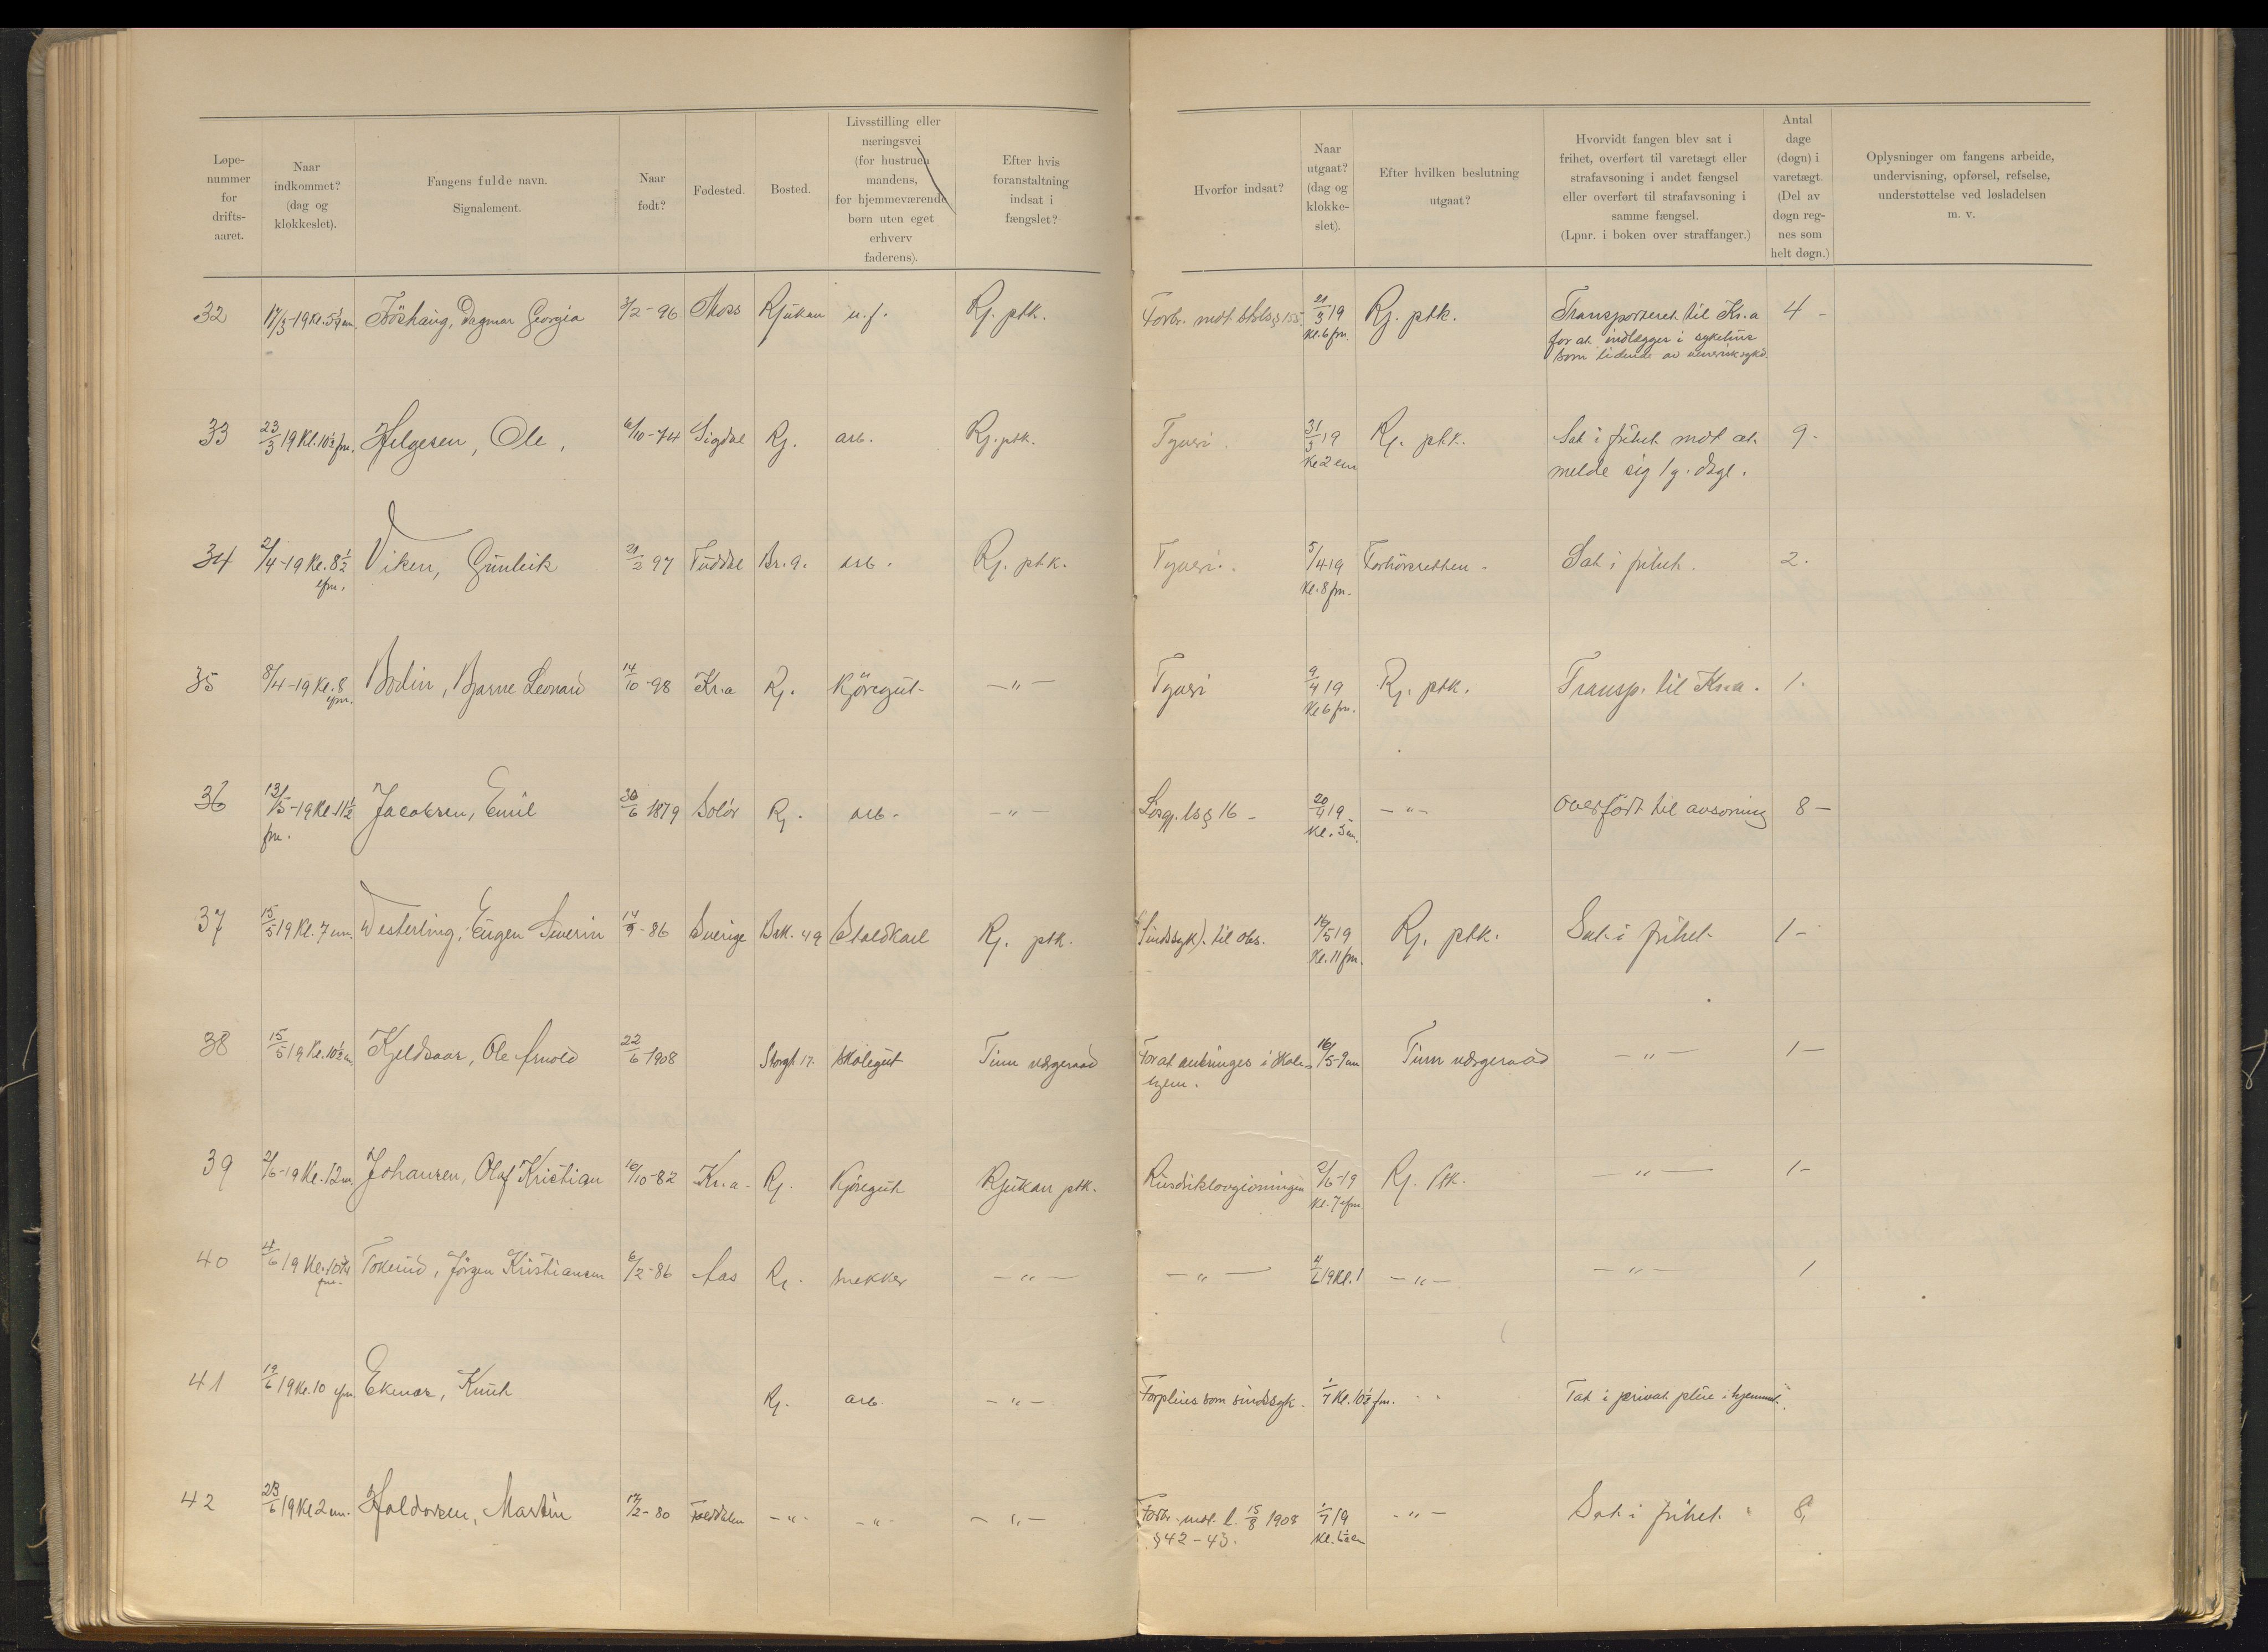 Løpe-
nummer
for
drifts-
aaret.
Naar
indkommet?
(dag og
klokkeslet).
Fangens fulde navn.
Signalement.
Naar
født?
Fødested.
Bosted.
Livsstilling eller
næringsvei
(for hustruen
mandens,
for hjemmeværende
børn uten eget
erhverv
faderens).
Efter hvis
foranstaltning
indsat i
fængslet?
Hvorfor indsat?
Naar
utgaat?
(dag og
klokke-
slet).
Efter hvilken beslutning
utgaat?
Hvorvidt fangen blev sat i
frihet, overført til varetægt eller
strafavsoning i andet fængsel
eller overført til strafavsoning i
samme fængsel.
(Lpnr. i boken over straffanger.)
Antal
dage
(døgn) i
varetægt.
(Del av
døgn reg-
nes som
helt døgn.)
Oplysninger om fangens arbeide,
undervisning, opførsel, refselse,
understøttelse ved løsladelsen
m. v.
32 17/3-19 Dagmar Georgia 3/2-96 Moss Rjukan u.f. Rj. ptk. Forbr. mot 21/3 19 Rj. ptk. Transporteret til Kr.a 4 -
Kl. 6 fm. for at indlægges i
som lidende av
33 23/3 19 Kl. 10½ fm. Helgesen, Ole, 6/10-74 Sigdal Rj. arb. Rj. ptk. Tyveri. 31/3 19 Rj. ptk. Sat i frihet mot at 9 -
Kl 2 em melde sig 1 g. dagl.
34 2/4-19 Kl. 8½ Viken, Gunleik 21/2 97 Tuddal Br. 9. arb. Rj. ptk. Tyveri. 5/4 19 Forhørsretten - Sat i frihet. 2.
efm. Kl. 8 fm.
35 8/4-19 Kl. 8 Bodin, Bjarne Leonard 14/10-98 Kr.a Rj. Kjöregut - " - Tyveri 9/4 19 Rj. ptk. Transp. til Kr.a. 1.
efm. Kl 6 fm.
36 13/5-19 Kl. 11½ Jacobsen, Emil 30/6 1879 Solör Rj. arb. - " - Lösgj. ls § 16 - 20/4 19 - - " - Overfört til avsoning 8 -
fm. Kl. 5 em.
37 15/5 19 Kl. 7 em. Westerling, Eugen Severin 14/9-86 Sverige Brk. 49 Staldkarl Rj. ptk. (Sindssyk). til obs. 16/5 19 Rj. ptk. Sat i frihet 1 -
Kl. 11 fm.
38 15/5 19 Kl. 10½ em Kjeldsaas, Ole Arnold 22/6 1908 Storgt 17. skolegut Tinn værgeraad For at anbringes i skole- 16/5-9 em Tinn værgeraad - " - 1 -
hjem.
39 2/6-19 Kl. 12 m. Johansen, Olaf Kristian 16/10-82 Kr.a - Rj. Kjöregut Rjukan ptk. Rusdriklovgivningen 2/6-19 Rj. Ptk. - " - 1 -
Kl. 7 efm.
40 4/6 19 Jörgen Kristiansen 6/2-86 Aas Rj. snekker - " - - " - 4/6 19 Kl. 1 - " - - " - 1
fm.
41 19/6 19 Kl. 10 efm Knut Rj. arb. - " - Forpleies som sindssyk. 1/7 Kl. 10½ fm. " Tat i privat pleie i hjemmet.
42 23/6 19 Kl 2 em. Haldorsen, Martin 17/2-80 - " - - " - - " - Forbr. mot. l. 15/8 1908 1/7 19 - " - Sat i frihet. 8,
§ 42 - 43.